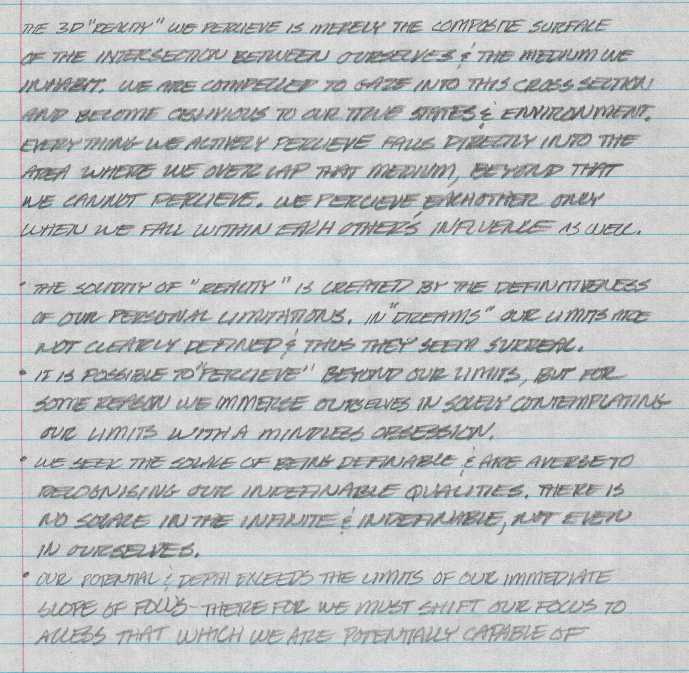 THE 3D "REALITY" WE PERCIEVE IS MERELY THE COMPOSITE SURFACE
OF THE INTERSECTION BETWEEN OURSELVES & THE MEDIUM WE
INHABIT. WE ARE COMPELLED TO GAZE INTO THIS CROSS SECTION
AND BECOME OBLIVIOUS TO OUR TRUE STATES & ENVIRONMENT.
EVERYTHING WE ACTIVELY PERCIEVE FALLS DIRECTLY INTO THE
AREA WHERE WE OVERLAP THAT MEDIUM, BEYOND THAT
WE CANNOT PERCIEVE. WE PERCIEVE EACHOTHER ONLY
WHEN WE FALL WITHIN EACH OTHER'S INFLUENCE AS WELL.
• THE SOLIDITY OF "REALITY" IS CREATED BY THE DEFINITIVENESS
OF OUR PERSONAL LIMITATIONS. IN "DREAMS" OUR LIMITS ARE
NOT CLEARLY DEFINED & THUS THEY SEEM SURREAL.
• IT IS POSSIBLE TO "PERCIEVE" BEYOND OUR LIMITS, BUT FOR
SOME REASON WE IMMERSE OURSELVES IN SOLELY CONTEMPLATING
OUR LIMITS WITH A MINDLESS OBSESSION.
• WE SEEK THE SOLACE OF BEING DEFINABLE & ARE AVERSE TO
RECOGNISING OUR INDEFINABLE QUALITIES. THERE IS
NO SOLACE IN THE INFINITE & INDEFINABLE, NOT EVEN
IN OURSELVES.
• OUR POTENTIAL & DEPTH EXCEEDS THE LIMITS OF OUR IMMEDIATE
SCOPE OF FOCUS - THERE FOR WE MUST SHIFT OUR FOCUS TO
ACCESS THAT WHICH WE ARE POTENTIALLY CAPABLE OF